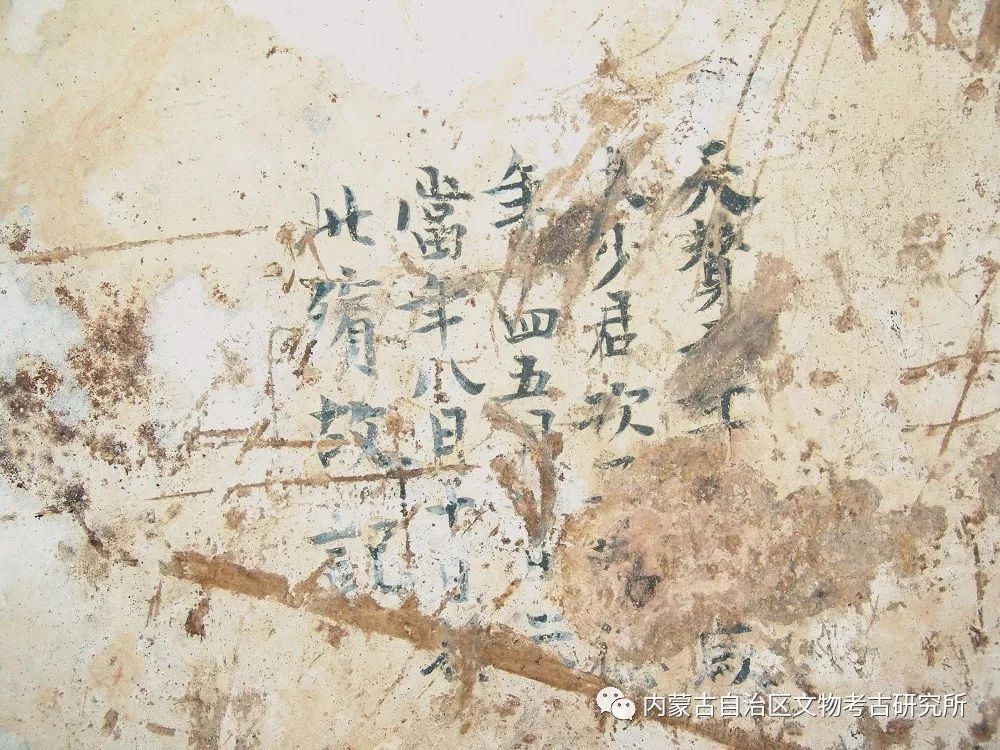 天贊二年歲
大少君次
年四五月日
當年八月十日於
此殯故記
内蒙古自治区文物考古研究所